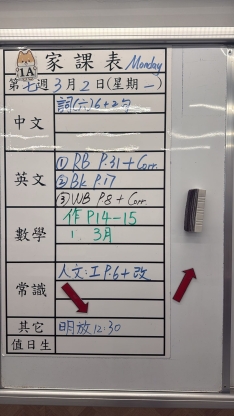 1A 家課表 Monday
第七週3月2日(星期一)
中文 詞(六)6+2句
英文 ① RB P.31 + Corr.
② Bk P.17
③ WB P8 + Corr.
數學 作P14-15
1. 3月
常識 人文:工P.6+改
其它 明放12:30
值日生